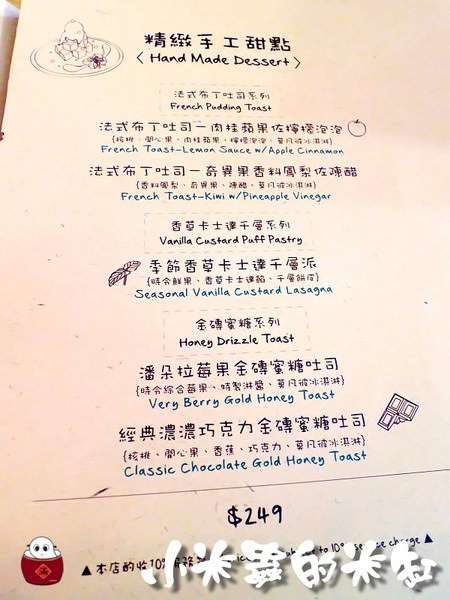 精緻手工甜點
〈 Hand Made Dessert 〉
法式布丁吐司系列
French Pudding Toast
法式布丁吐司－肉桂蘋果佐檸檬泡泡
{核桃、開心果、肉桂蘋果、檸檬泡泡、莫凡彼冰淇淋}
French Toast-Lemon Sauce w/Apple Cinnamon
法式布丁吐司－奇異果香料鳳梨佐陳醋
{香料鳳梨、奇異果、陳醋、莫凡彼冰淇淋}
French Toast-Kiwi w/Pineapple Vinegar
香草卡士達千層系列
Vanilla Custard Puff Pastry
季節香草卡士達千層派
{時令鮮果、香草卡士達餡、千層餅皮}
Seasonal Vanilla Custard Lasagna
金磚蜜糖系列
Honey Drizzle Toast
潘朵拉莓果金磚蜜糖吐司
{時令綜合莓果、特製淋醬、莫凡彼冰淇淋}
Very Berry Gold Honey Toast
經典濃濃巧克力金磚蜜糖吐司
{核桃、開心果、香蕉、巧克力、莫凡彼冰淇淋}
Classic Chocolate Gold Honey Toast
$249
▲本店酌收10% to 10% service charge ▲
小米蟲的米缸